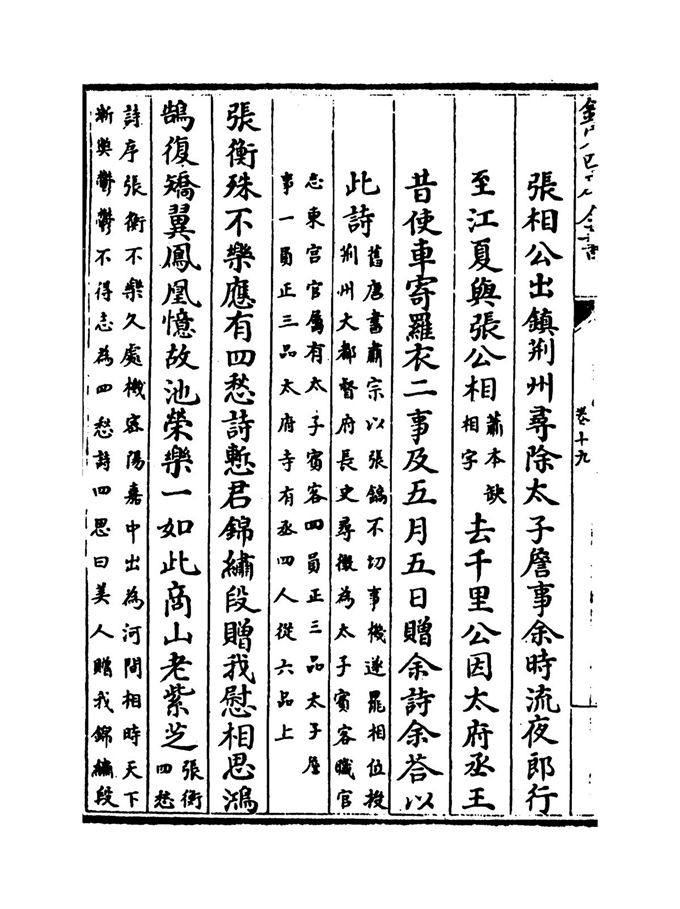 卷十九
張相公出鎮荆州尋除太子詹事余時流夜郎行
至江夏與張公相蕭本缺相字去千里公因太府丞王
昔使車寄羅衣二事及五月五日贈余詩余荅以
此詩舊唐書肅宗以張鎬不切事機遂罷相位授
荆州大都督府長史尋徵為太子賓客職官
志東宫官屬有太子賓客四員正三品太子詹
事一員正三品太府寺有丞四人從六品上
張衡殊不樂應有四愁詩慙君錦繡段贈我慰相思鴻
鵠復矯翼鳳凰憶故池榮樂一如此商山老紫芝張衡四愁
詩序張衡不樂久處機密陽嘉中出為河間相時天下
漸弊鬱鬱不得志為四愁詩四思曰美人贈我錦繡段